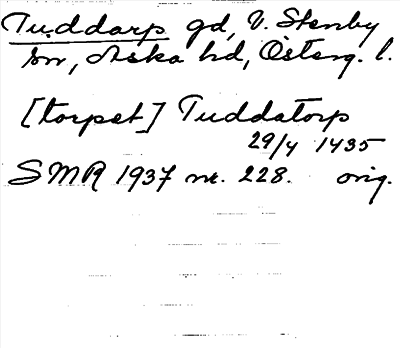 Tuddarp gd, V. Stenby
sn, Aska hd, Österg. l.
[torpet] Tuddatorp
29/4 1435
SMR 1937 nr. 228. orig.